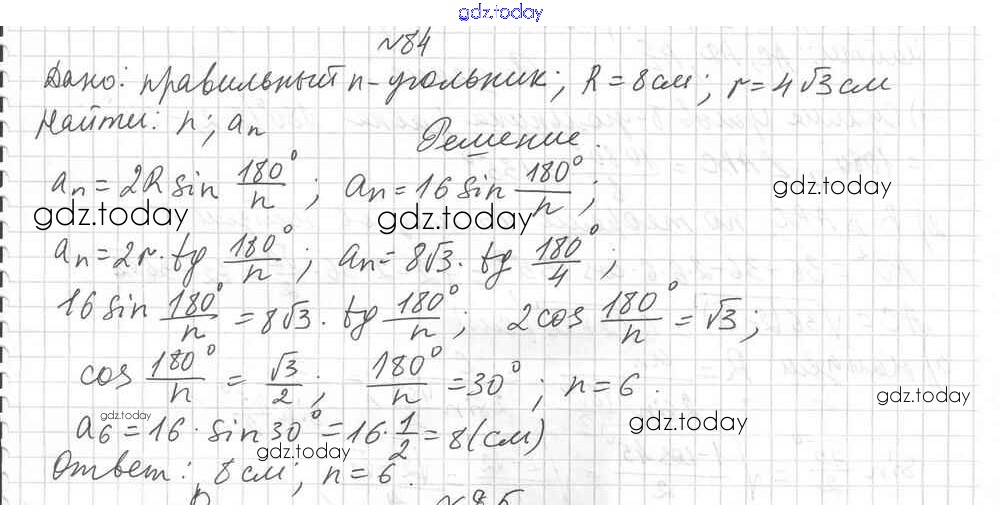 gdz.today
№84
Дано: правильный n-угольник; R = 8 см; r = 4√3 см
Найти: n; aₙ
Решение.
aₙ = 2R sin 180°/n; aₙ = 16 sin 180°/n;
gdz.today
gdz.today gdz.today
aₙ = 2r · tg 180°/n; aₙ = 8√3 · tg 180°/4;
16 sin 180°/n = 8√3 · tg 180°/n; 2cos 180°/n = √3;
cos 180°/n = √3/2; 180°/n = 30°; n = 6.
gdz.today
gdz.today gdz.today
a₆ = 16 · sin 30° = 16 · 1/2 = 8 (см)
gdz.today
Ответ: 8 см; n = 6.
№85